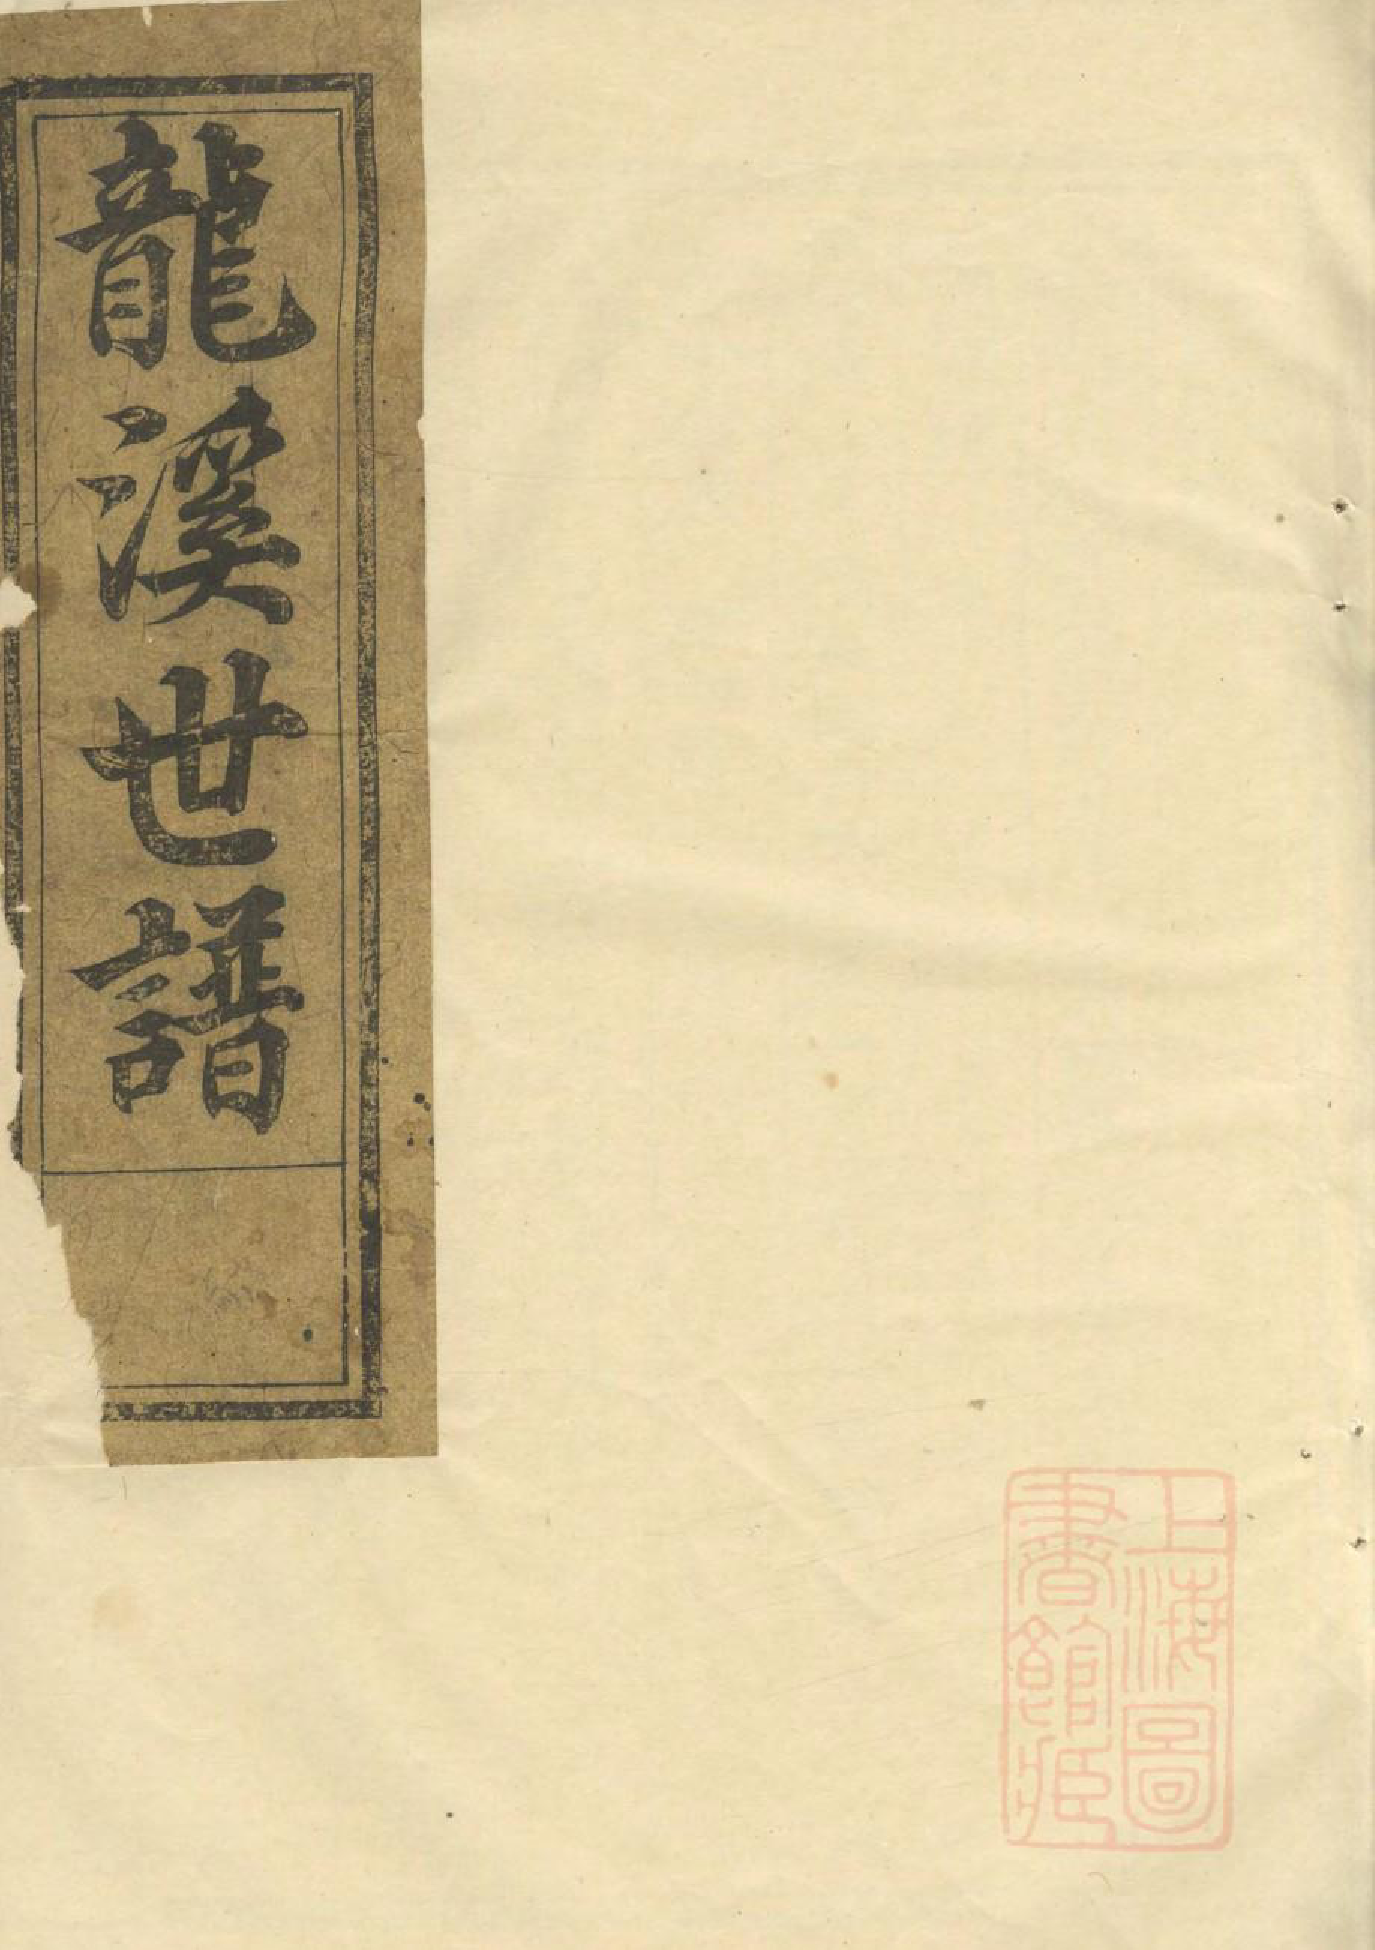 龍溪世譜
上海圖
書館藏